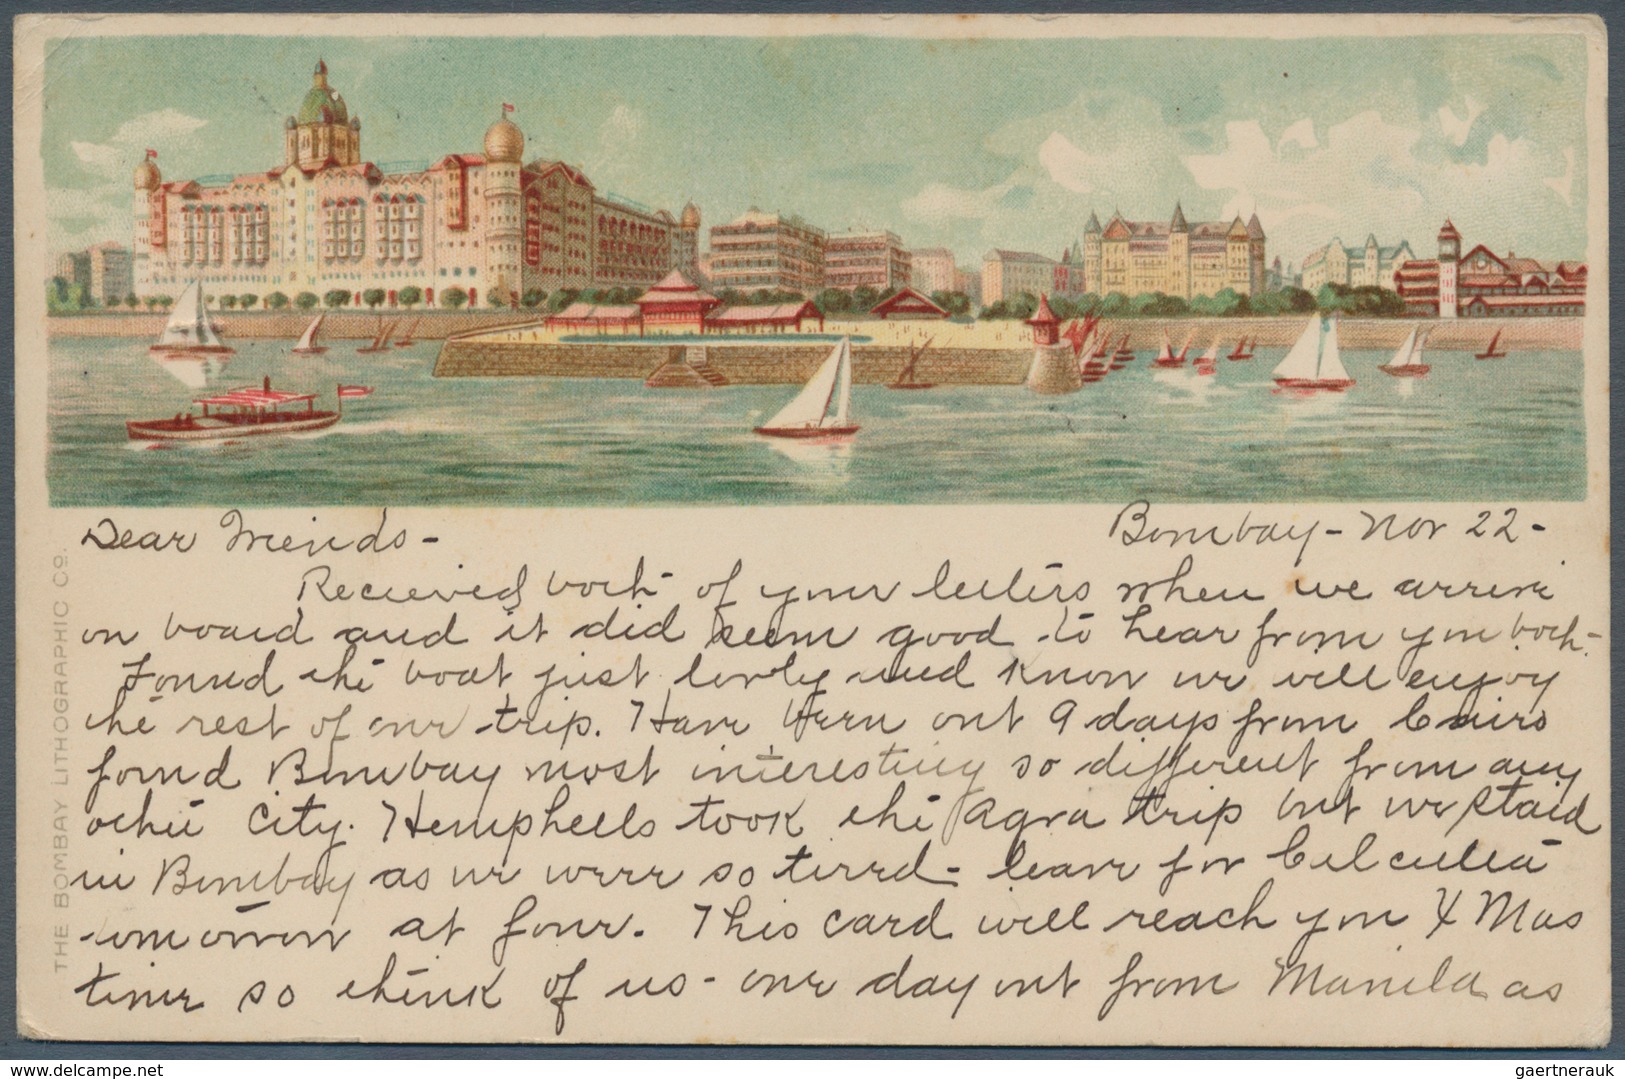 Dear Friends -
Bombay - Nov 22 -
Recieved both of your letters when we arrived
on board and it did seem good to hear from you both.
Found the boat just lovely and know we will enjoy
the rest of our trip. Have been out 9 days from Cairo
found Bombay most interesting so different from any
other city. Hemphells took the Agra trip but we staid
in Bombay as we were so tired - leave for Calcutta
tomorrow at four. This card will reach you X Mas
time so think of us - one day out from Manila as
THE BOMBAY LITHOGRAPHIC Co.
delcampe.net
gaertnerauk